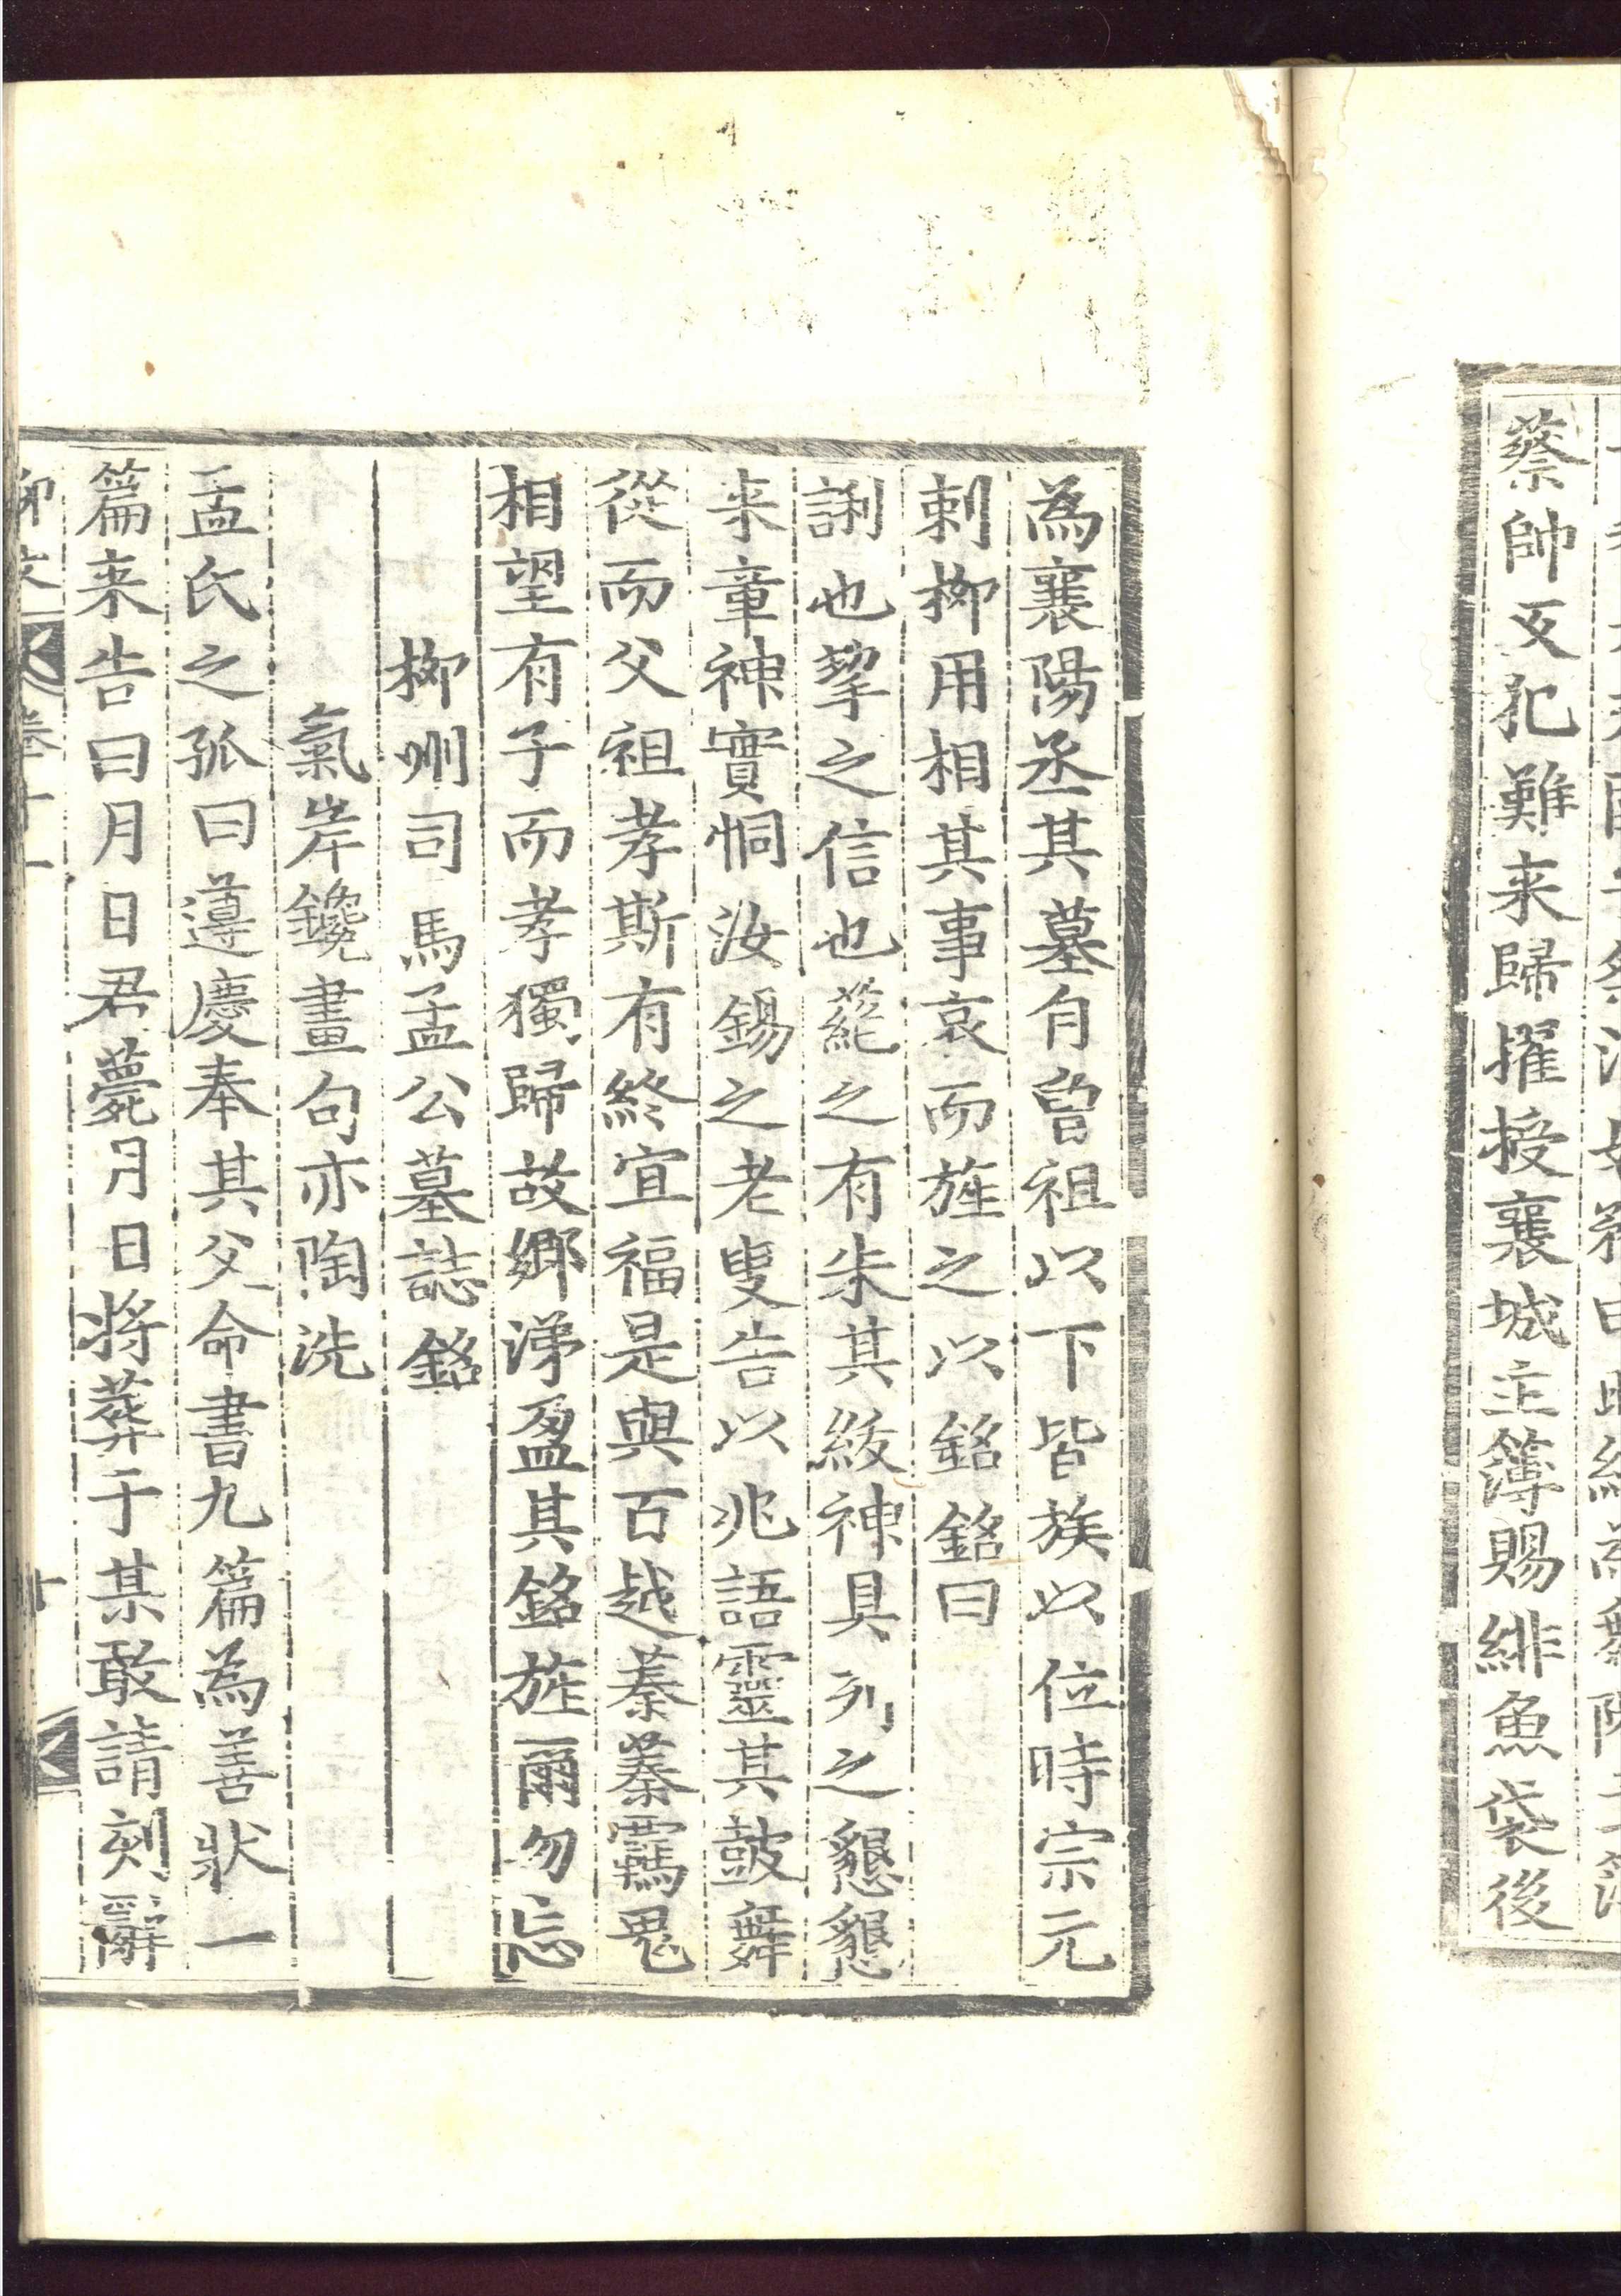 蔡帥反犯難来歸擢授襄城主簿賜緋魚袋後
為襄陽丞其墓自曾祖以下皆族以位時宗元
刺柳用相其事哀而旌之以銘銘曰
誗也挈之信也蒊之有朱其紱神具列之懇懇
来章神實恫汝錫之老叟告以兆語靈其鼓舞
從而父祖孝斯有終宜福是與百越蓁蓁羈鬼
相望有子而孝獨歸故鄉涕盈其銘旌爾勿忘
柳州司馬孟公墓誌銘
氣岸鑱畫句亦陶洗
孟氏之孤曰遵慶奉其父命書九篇為善狀一
篇来告曰月日君薨月日将葬于某敢請刻辭
柳文 卷十一 十